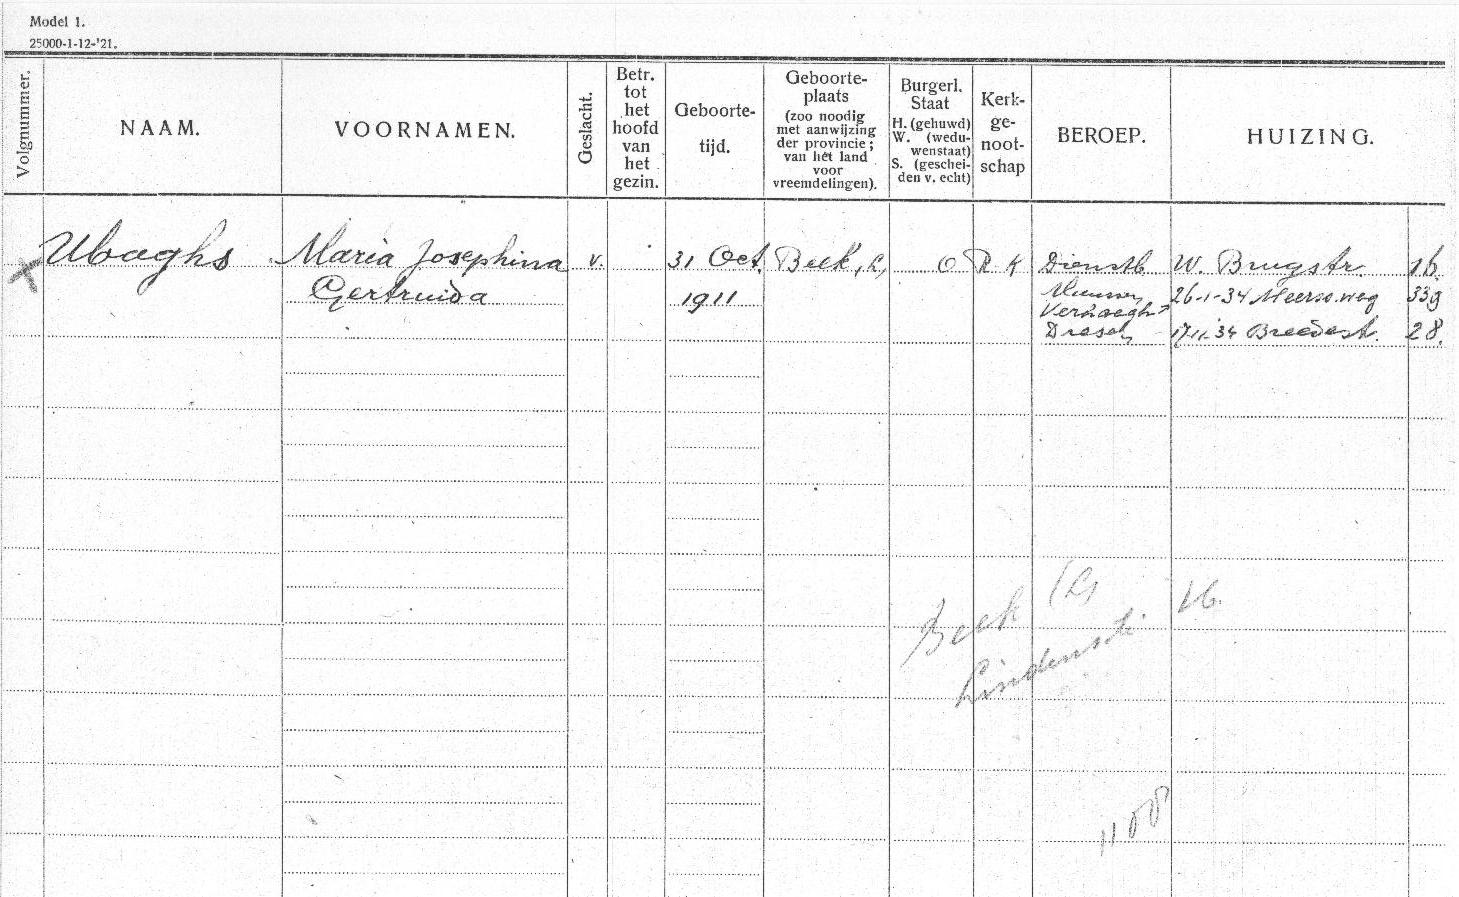 Model 1.
25000-1-12-'21.
Volgnummer.
NAAM.
VOORNAMEN.
Geslacht.
Betr.
tot
het
hoofd
van
het
gezin.
Geboorte-
tijd.
Geboorte-
plaats
(zoo noodig
met aanwijzing
der provincie;
van het land
voor
vreemdelingen).
Burgerl.
Staat
H. (gehuwd)
W. (wedu-
wenstaat)
S. (geschei-
den v. echt)
Kerk-
ge-
noot-
schap
BEROEP.
HUIZING.
Ubaghs Maria Josephina v. 31 Oct. Beek, L, O R K Dienstb. W. Brugstr. 16
Gertruida 1911 26-1-34 Meerss.weg 339
17-11-34 Breedest. 28.
Beek (L)
Lindenstr. 26.